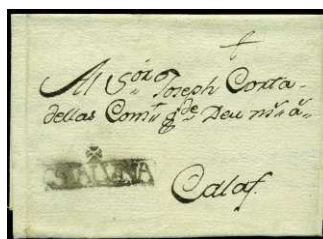 Al S.or Joseph Corta-
dellas Com.t g.de Deu m.s a.s
CATALUÑA
Calaf.